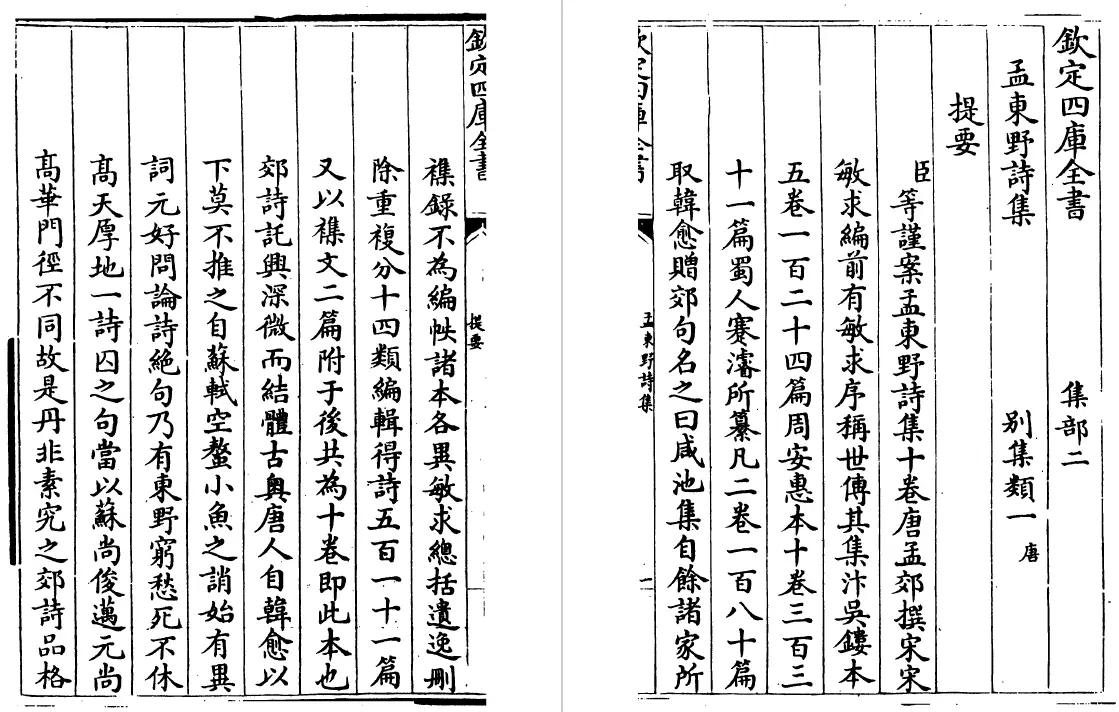 欽定四庫全書 集部二
孟東野詩集 别集類一唐
提要
臣等謹案孟東野詩集十卷唐孟郊撰宋宋
敏求編前有敏求序稱世傳其集汴吳鏤本
五卷一百二十四篇周安惠本十卷三百三
十一篇蜀人蹇濬所纂凡二卷一百八十篇
取韓愈贈郊句名之曰咸池集自餘諸家所
欽定四庫全書 孟東野詩集 一
欽定四庫全書 提要
襍錄不為編帙諸本各異敏求總括遺逸刪
除重複分十四類編輯得詩五百一十一篇
又以襍文二篇附于後共為十卷即此本也
郊詩託興深微而結體古奥唐人自韓愈以
下莫不推之自蘇軾空螯小魚之誚始有異
詞元好問論詩絕句乃有東野窮愁死不休
髙天厚地一詩囚之句當以蘇尚俊邁元尚
髙華門徑不同故是丹非素究之郊詩品格